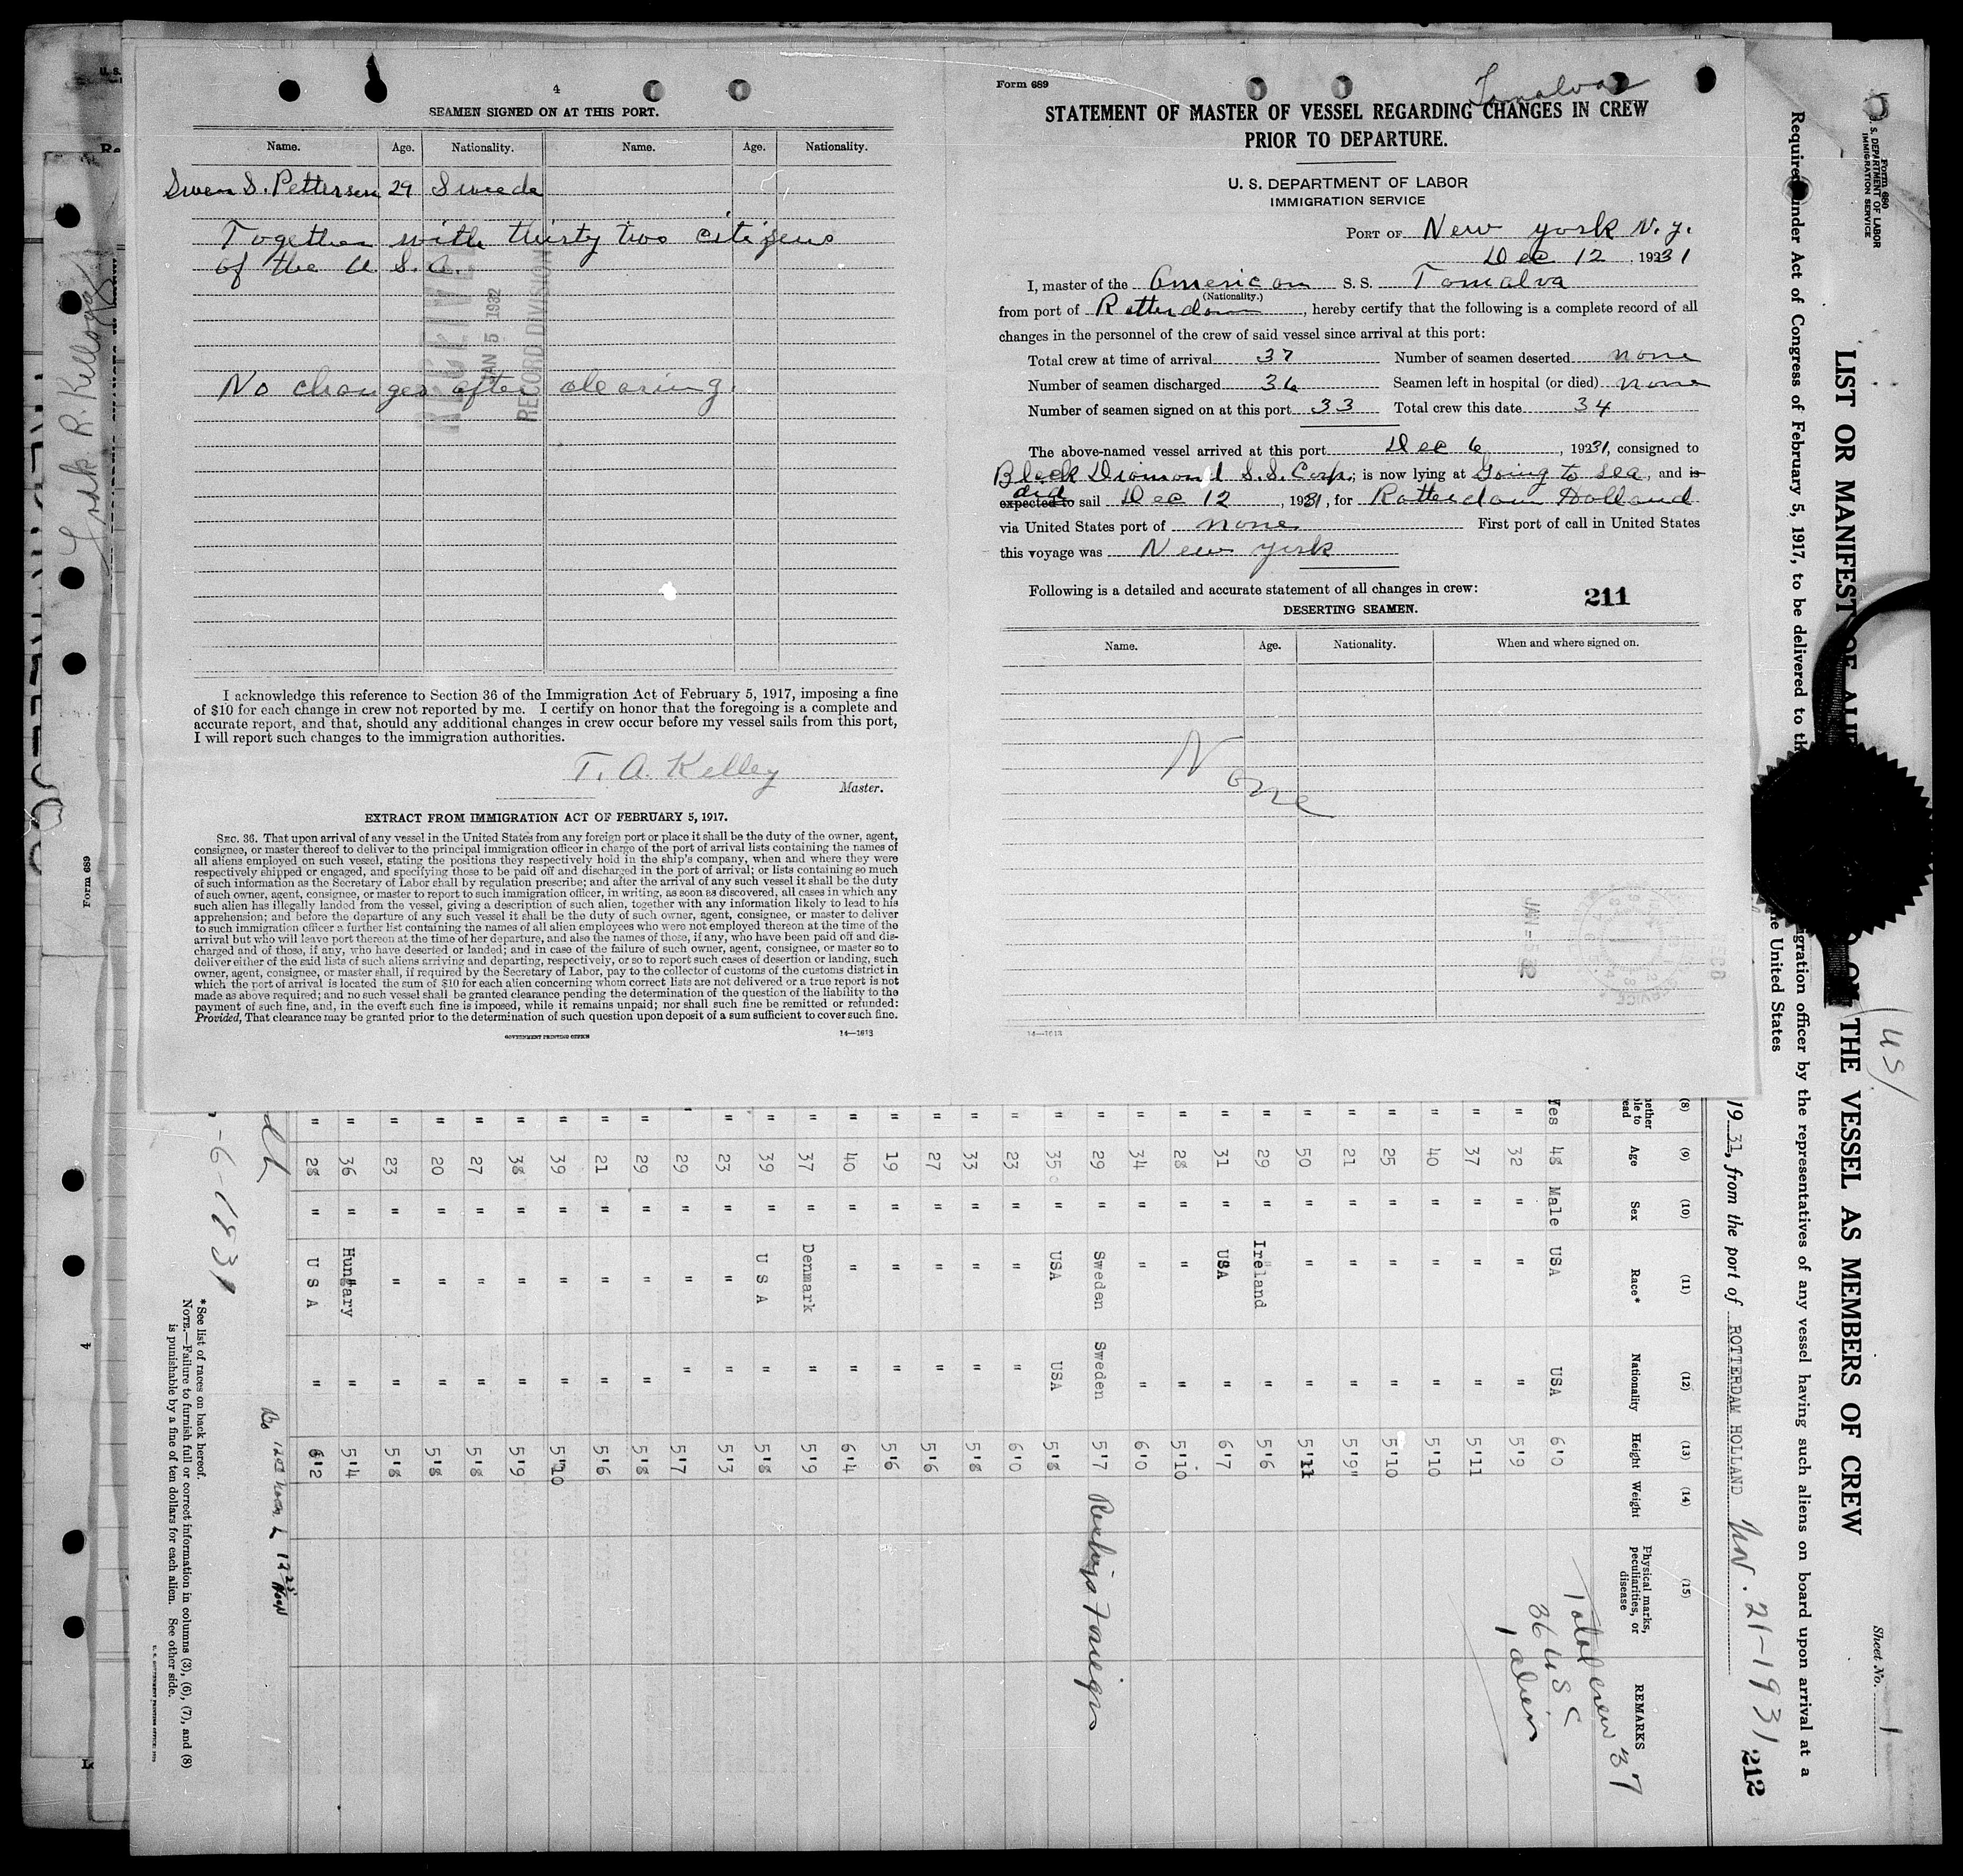 4
SEAMEN SIGNED ON AT THIS PORT.
Name. Age. Nationality. Name. Age. Nationality.
Swen S. Pettersen 29 Swede
Together with thirty two citizens
of the U. S. A.
RECEIVED
JAN 5 1932
RECORD DIVISION
No changes after clearing.
I acknowledge this reference to Section 36 of the Immigration Act of February 5, 1917, imposing a fine
of $10 for each change in crew not reported by me. I certify on honor that the foregoing is a complete and
accurate report, and that, should any additional changes in crew occur before my vessel sails from this port,
I will report such changes to the immigration authorities.
T. A. Kelley
Master.
EXTRACT FROM IMMIGRATION ACT OF FEBRUARY 5, 1917.
SEC. 36. That upon arrival of any vessel in the United States from any foreign port or place it shall be the duty of the owner, agent,
consignee, or master thereof to deliver to the principal immigration officer in charge of the port of arrival lists containing the names of
all aliens employed on such vessel, stating the positions they respectively hold in the ship's company, when and where they were
respectively shipped or engaged, and specifying those to be paid off and discharged in the port of arrival; or lists containing so much
of such information as the Secretary of Labor shall by regulation prescribe; and after the arrival of any such vessel it shall be the duty
of such owner, agent, consignee, or master to report to such immigration officer, in writing, as soon as discovered, all cases in which any
such alien has illegally landed from the vessel, giving a description of such alien, together with any information likely to lead to his
apprehension; and before the departure of any such vessel it shall be the duty of such owner, agent, consignee, or master to deliver
to such immigration officer a further list containing the names of all alien employees who were not employed thereon at the time of the
arrival but who will leave port thereon at the time of her departure, and also the names of those, if any, who have been paid off and dis-
charged and of those, if any, who have deserted or landed; and in case of the failure of such owner, agent, consignee, or master so to
deliver either of the said lists of such aliens arriving and departing, respectively, or so to report such cases of desertion or landing, such
owner, agent, consignee, or master shall, if required by the Secretary of Labor, pay to the collector of customs of the customs district in
which the port of arrival is located the sum of $10 for each alien concerning whom correct lists are not delivered or a true report is not
made as above required; and no such vessel shall be granted clearance pending the determination of the question of the liability to the
payment of such fine, and, in the event such fine is imposed, while it remains unpaid; nor shall such fine be remitted or refunded:
Provided, That clearance may be granted prior to the determination of such question upon deposit of a sum sufficient to cover such fine.
GOVERNMENT PRINTING OFFICE 14—1613
Form 689
Tomalva
STATEMENT OF MASTER OF VESSEL REGARDING CHANGES IN CREW
PRIOR TO DEPARTURE.
U. S. DEPARTMENT OF LABOR
IMMIGRATION SERVICE
PORT OF New york N. y.
Dec 12, 1931
I, master of the American S. S. Tomalva
(Nationality.)
from port of Rotterdam, hereby certify that the following is a complete record of all
changes in the personnel of the crew of said vessel since arrival at this port:
Total crew at time of arrival 37 Number of seamen deserted none
Number of seamen discharged 36 Seamen left in hospital (or died) none
Number of seamen signed on at this port 33 Total crew this date 34
The above-named vessel arrived at this port Dec 6, 1931, consigned to
Black Diamond S. S. Corp.; is now lying at Going to sea, and is
did
expected to sail Dec 12, 1931, for Rotterdam Holland
via United States port of none First port of call in United States
this voyage was New york
Following is a detailed and accurate statement of all changes in crew:
211
DESERTING SEAMEN.
Name. Age. Nationality. When and where signed on.
None
JAN - 5 32
14—1613
Form 680
U. S. DEPARTMENT OF LABOR
IMMIGRATION SERVICE
Sheet No. 1
US
LIST OR MANIFEST OF ALIE ON THE VESSEL AS MEMBERS OF CREW
Required under Act of Congress of February 5, 1917, to be delivered to th igration officer by the representatives of any vessel having such aliens on board upon arrival at a
he United States
1931, from the port of ROTTERDAM HOLLAND Nov. 21-1931
212
(8) (9) (10) (11) (12) (13) (14) (15)
Age Sex Race* Nationality Height Weight Physical marks, peculiarities, or disease REMARKS
Total crew 37
36 USC
1 alien
Yes 48 Male USA USA 6'0
" 32 " " " 5'9
" 37 " " " 5'11
" 40 " " " 5'10
" 25 " " " 5'10
" 21 " " " 5'9"
" 50 " " " 5'11
" 29 " Ireland " 5'6
" 31 " USA " 6'7
" 28 " " " 5'10
" 34 " " " 6'0
" 29 " Sweden Sweden 5'7 Reships Foreign
" 35 " USA USA 5'8
" 23 " " " 6'0
" 33 " " " 5'8
" 27 " " " 5'6
" 19 " " " 5'6
" 40 " " " 6'4
" 37 " Denmark " 5'9
" 39 " U S A " 5'8
" 23 " " " 5'3
" 29 " " " 5'7
" 29 " " " 5'8
" 21 " " " 5'6
" 39 " " " 5'10
" 38 " " " 5'9
" 27 " " " 5'8
" 20 " " " 5'8
" 23 " " " 5'8
" 36 " Hungary " 5'4
" 28 " U S A " 6'2
-6-1931
* See list of races on back hereof.
NOTE.—Failure to furnish full or correct information in columns (3), (6), (7), and (8)
is punishable by a fine of ten dollars for each alien. See other side.
Fredk. R. Kellogg
Form 689
4